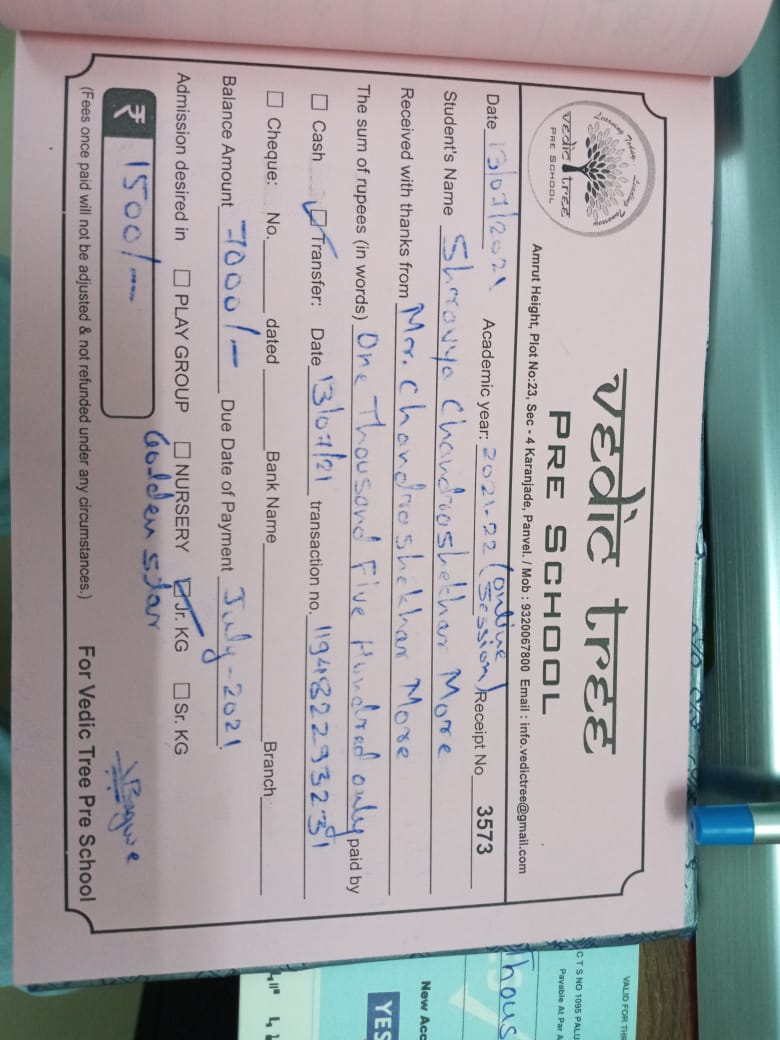 Learning Today
vedic tree
PRE SCHOOL
vedic tree
PRE SCHOOL
Amrut Height, Plot No:23, Sec - 4 Karanjade, Panvel. / Mob : 9320067800 Email : info.vedictree@gmail.com
Date 13/07/2021 Academic year: 2021-22 (online session) Receipt No 3573
Student's Name Shravya Chandrashekhar More
Received with thanks from Mr. Chandrashekhar More
The sum of rupees (in words) One Thousand Five Hundred only paid by
☐ Cash ☑ Transfer: Date 13/07/21 transaction no. 119482293231
☐ Cheque: No. dated Bank Name Branch
Balance Amount 7000/- Due Date of Payment July-2021
Admission desired in ☐ PLAY GROUP ☐ NURSERY ☑ Jr. KG ☐ Sr. KG
Golden star
₹ 1500/-
(Fees once paid will not be adjusted & not refunded under any circumstances.) For Vedic Tree Pre School
VALID FOR
CTS NO 1095 PALU
Payable At Par
Thous
New Acc
YES